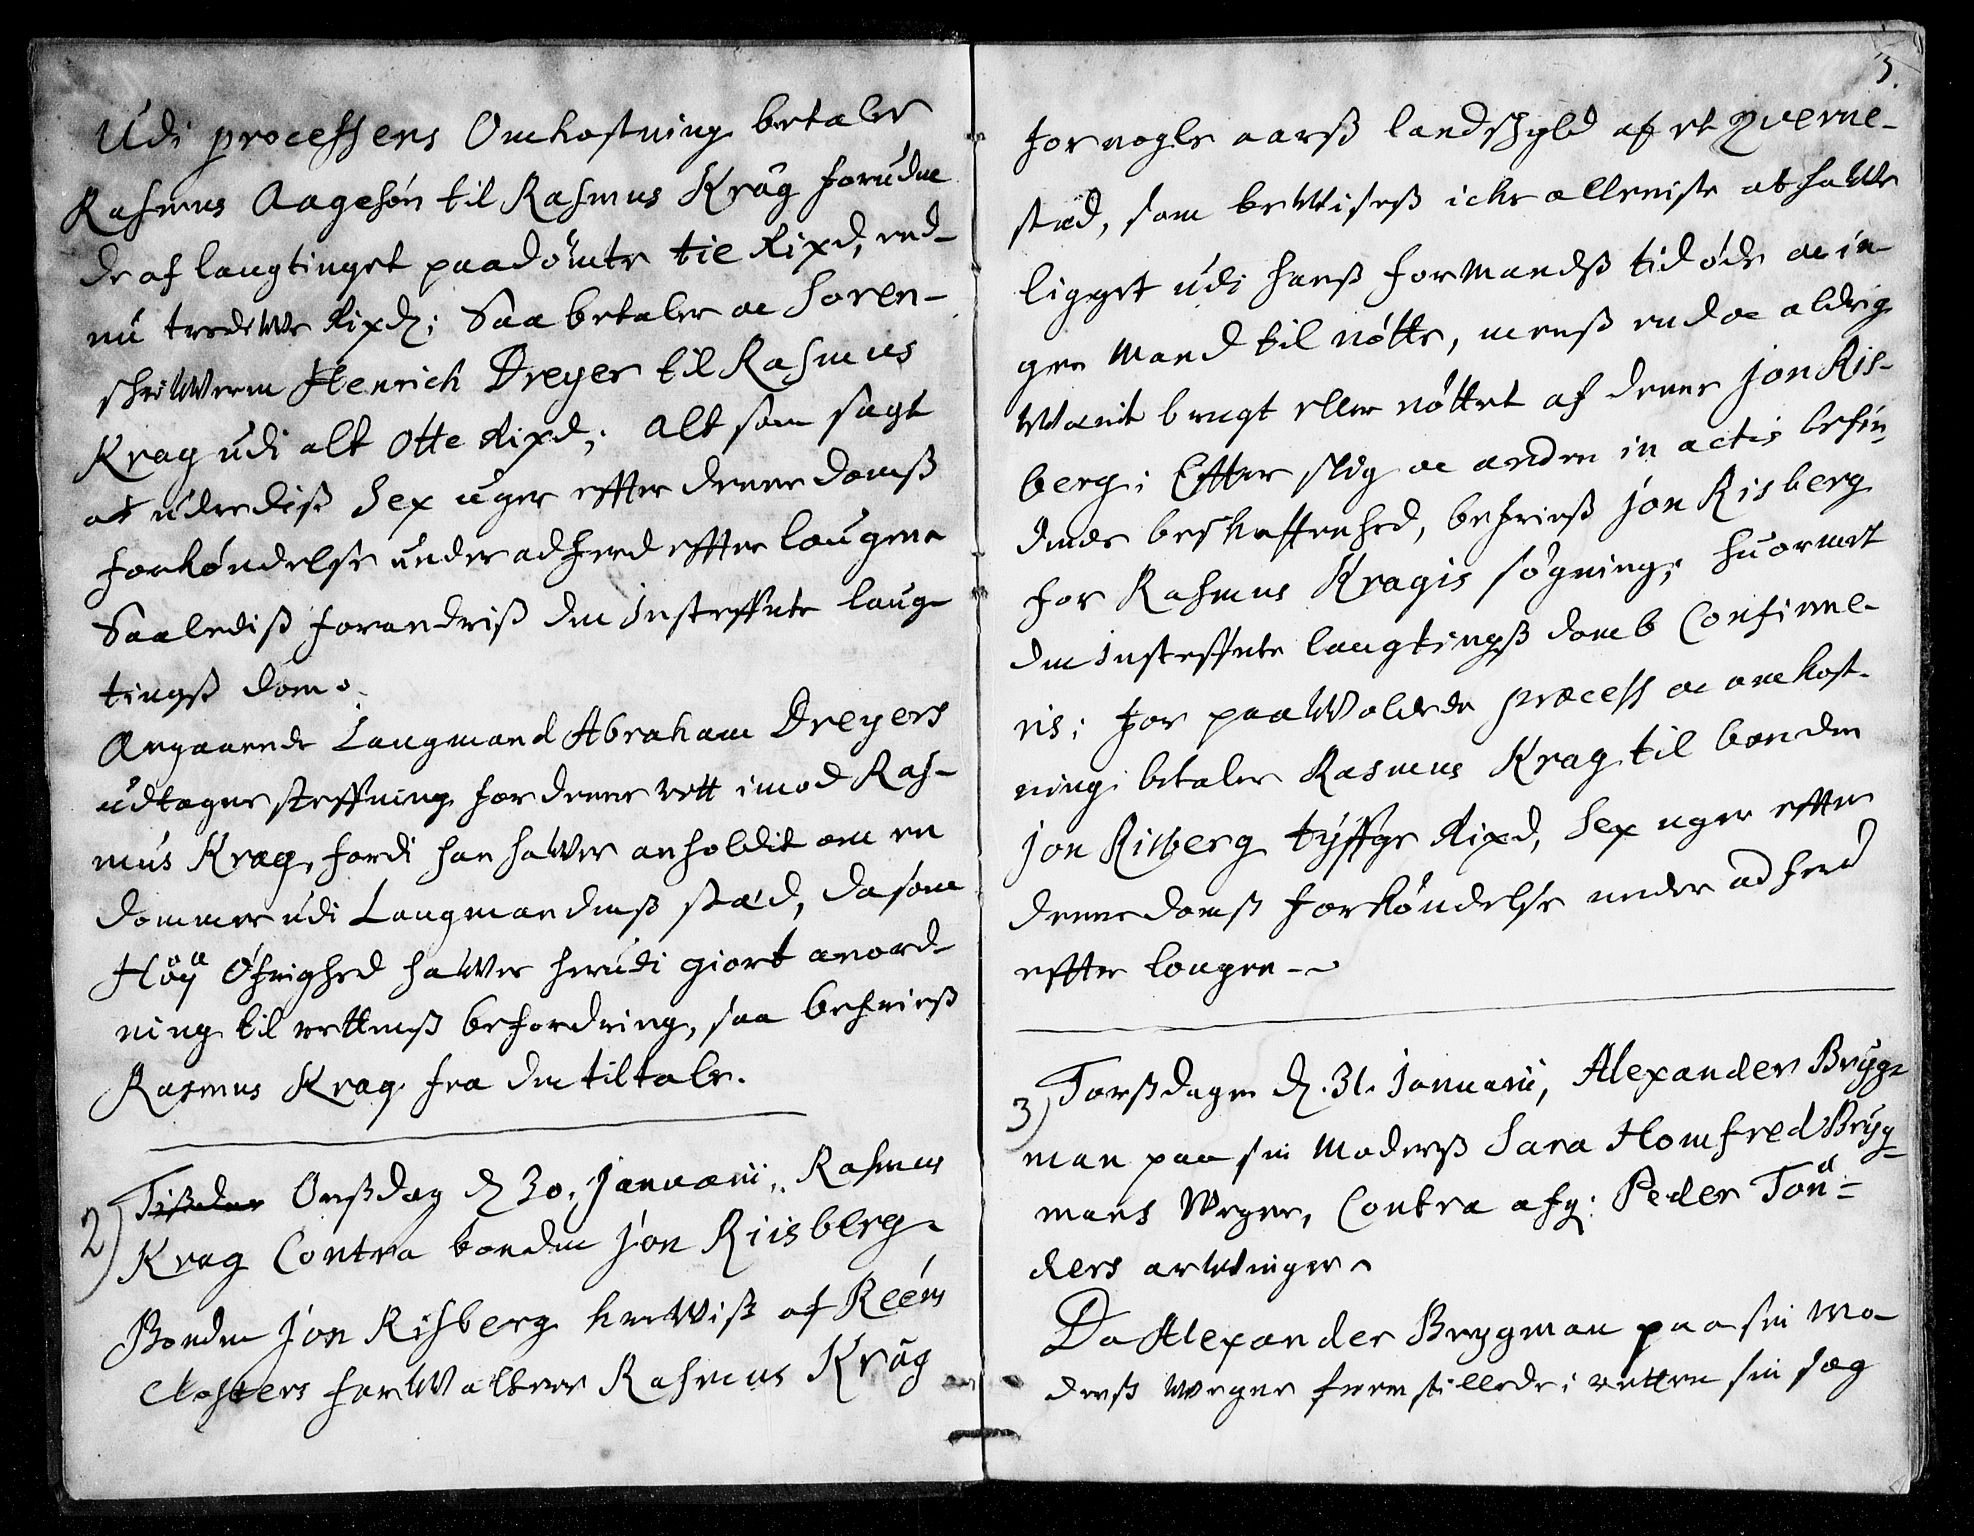 Udi processens Omkostning betaler
Rasmus Aagesøn til Rasmus Krag foruden
de af laugtinget paadømte tie Rixd, end-
nu tredewe Rixd; Saa betaler oc Soren-
schriweren Henrich Dreyer til Rasmus
Krag udi alt Otte Rixd; alt som sagt
at udrediss Sex uger effter denne domss
forkøndelse under adferd effter lougen
Saalediss forandriss den Insteffnte laug-
tingss dom.
Angaaende Laugmand Abraham Dreyers
udtagne steffning for denne rett imod Ras-
mus Krag, fordi han hawer anholdit om en
dommer udi Laugmandenss stæd, da som
Höÿ Øfrighed hawer herudi giort anord-
ning til rettenss befordring, saa befriess
Rasmus Krag fra den tiltale.
2) Tissdag Onssdag d 30. Januarii, Rasmus
Krag Contra bonden Jon Riisberg
Bonden Jon Risberg krewiss af Reens
closters forwaltere Rasmus Krag
3.
for nogle aarss landschyld af et Querne-
stæd, som bewisess icke alleniste at hawe
ligget udi hanss formandss tid øde oc in-
gen Mand til nøtte, menss end oc aldrig
Wærit brugt eller nøttet af denne Jon Ris-
berg; Effter slig oc anden in actis befin-
dende beskaffenhed, befriess Jon Risberg
for Rasmus Kragis søgning; huormet
den Insteffnte laugtingss domb Confirme-
ris; for paawoldede process oc omkost-
ning betaler Rasmus Krag til bonden
Jon Risberg tyffge Rixd, Sex uger effter
denne domss forkøndelse under adferd
effter lougen
3) Torssdagen d. 31. Januarii, Alexander Bryg-
man paa sin Moderss Sara Homfred Bryg-
mans Wegne, Contra afg: Peder Tön-
ders arwinger
Da Alexander Brygman paa sin Mo-
derss wegne fremstillede i retten sin sag